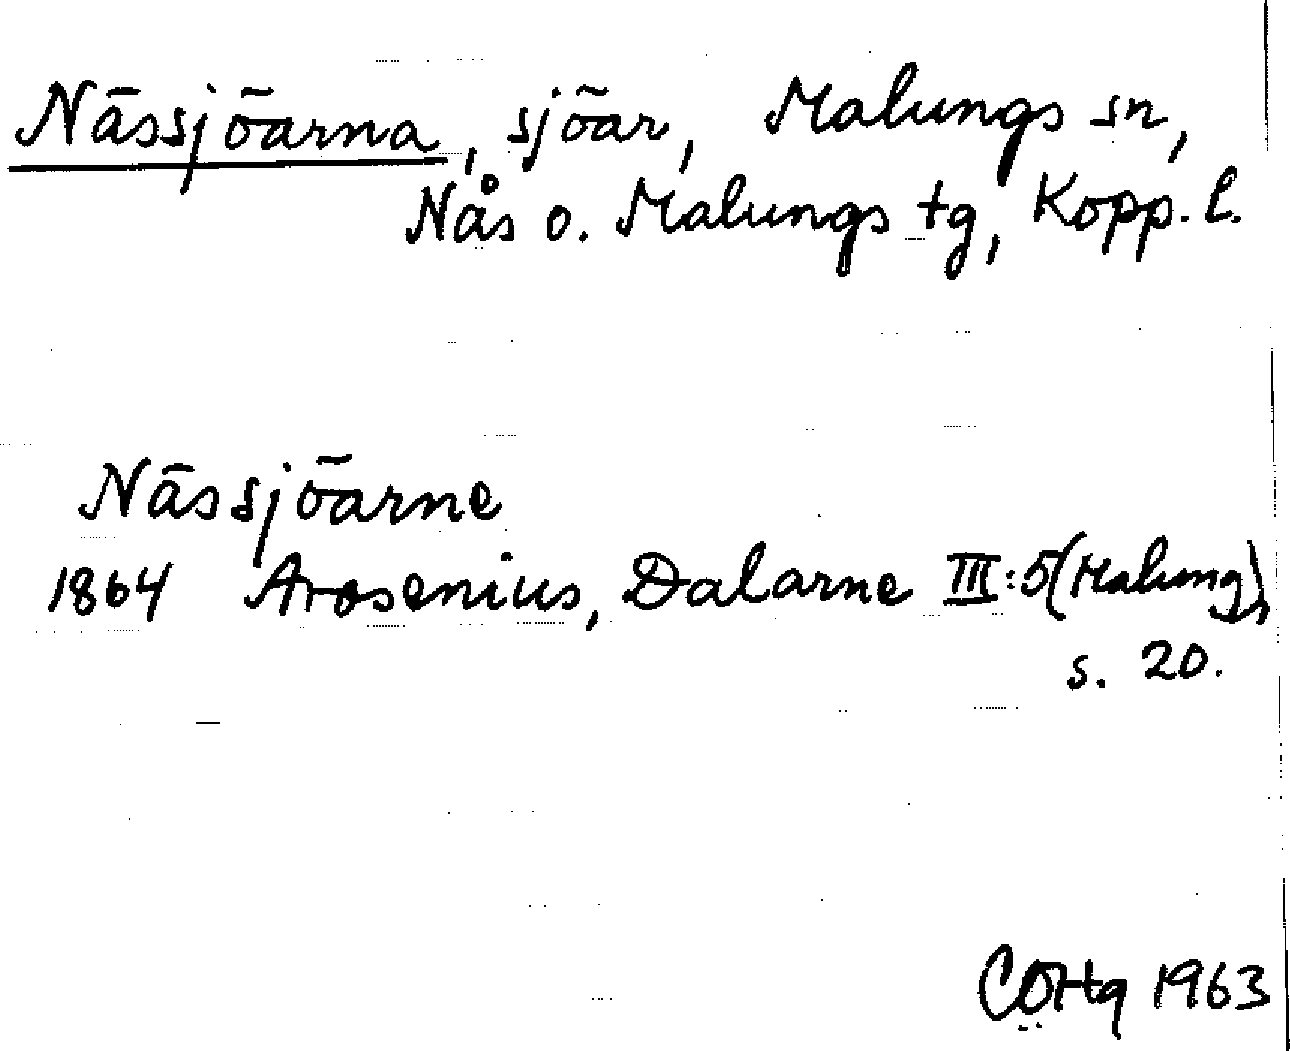 Nässjöarna, sjöar, Malungs sn,
Nås o. Malungs tg, Kopp. l.
Nässjöarne
1864 Arosenius, Dalarne III:5 (Malung),
s. 20.
1963